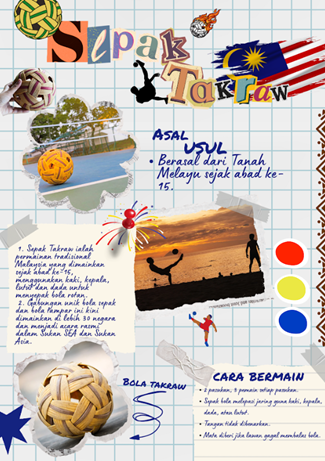 Sepak
Takraw
Asal
usul
• Berasal dari Tanah
Melayu sejak abad ke-
15.
1. Sepak Takraw ialah
permainan tradisional
Malaysia yang dimainkan
sejak abad ke-15,
menggunakan kaki, kepala,
lutut dan dada untuk
menyepak bola rotan.
2. Gabungan unik bola sepak
dan bola tampar ini kini
dimainkan di lebih 30 negara
dan menjadi acara rasmi
dalam Sukan SEA dan Sukan
Asia.
Bola takraw
cara bermain
• 2 pasukan, 3 pemain setiap pasukan.
• Sepak bola melepasi jaring guna kaki, kepala,
dada, atau lutut.
• Tangan tidak dibenarkan.
• Mata diberi jika lawan gagal membalas bola.